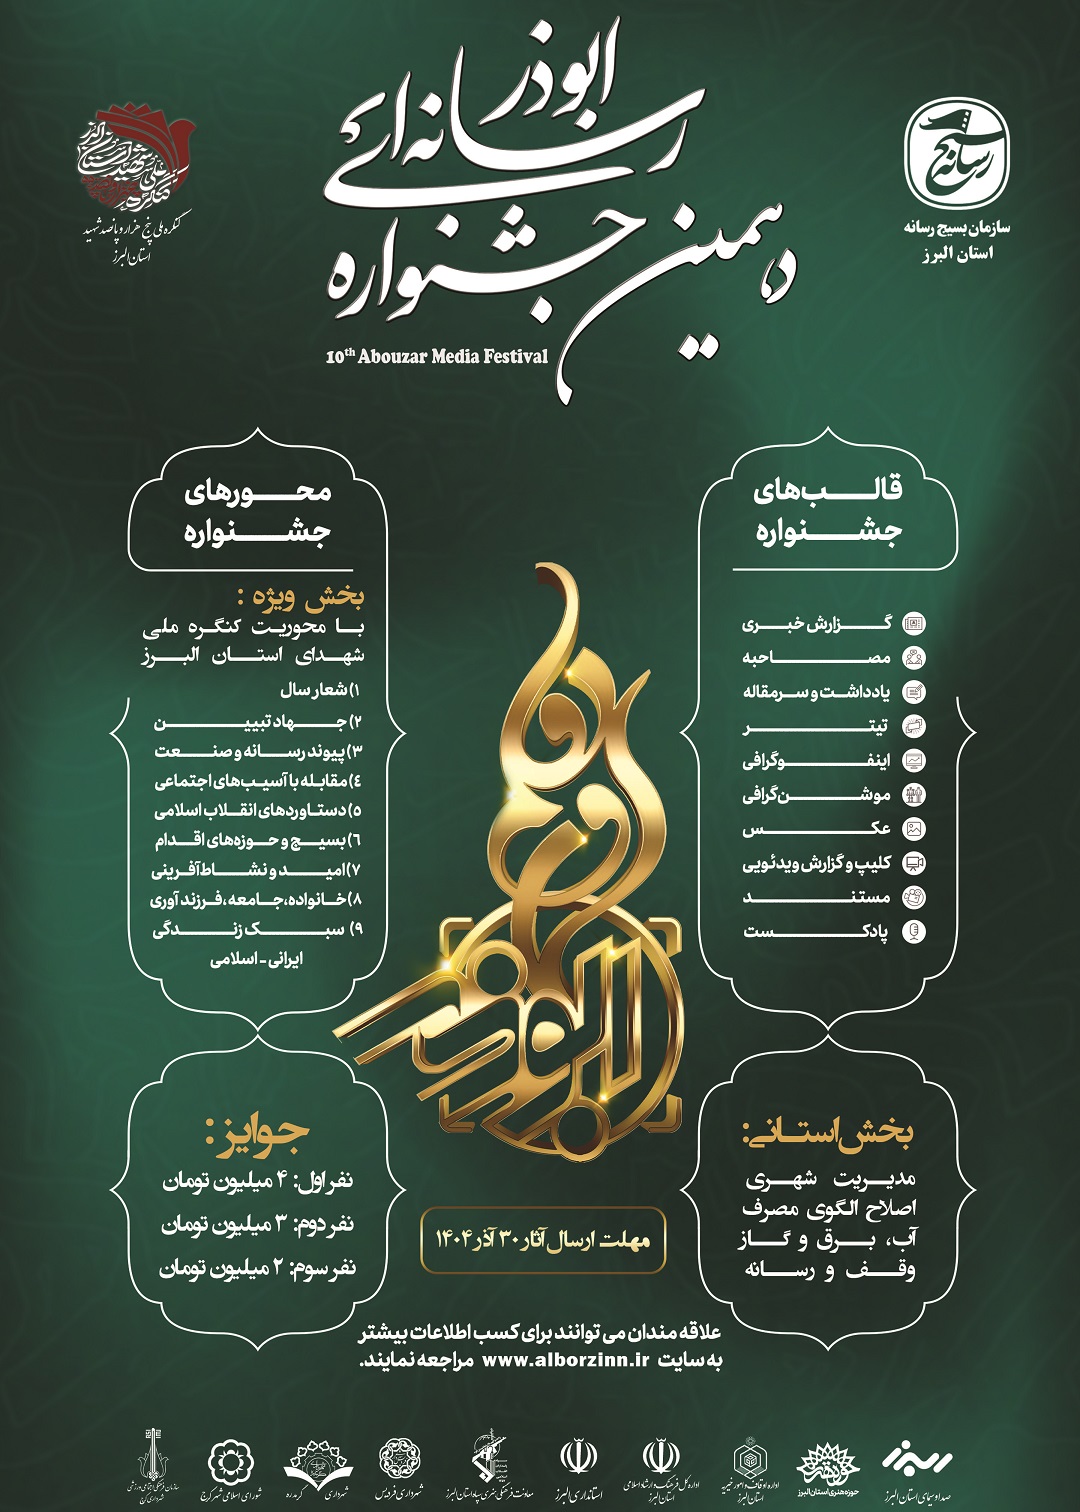 دهمین جشنواره
رسانه‌ای
ابوذر
10th Abouzar Media Festival
رسانه
سازمان بسیج رسانه
استان البرز
کنگره ملی پنج هزار و پانصد شهید
استان البرز
قالب‌های
جشنواره
گزارش خبری
مصاحبه
یادداشت و سرمقاله
تیتر
اینفوگرافی
موشن‌گرافی
عکس
کلیپ و گزارش ویدئویی
مستند
پادکست
محورهای
جشنواره
بخش ویژه :
با محوریت کنگره ملی
شهدای استان البرز
۱) شعار سال
۲) جهاد تبیین
۳) پیوند رسانه و صنعت
٤) مقابله با آسیب‌های اجتماعی
٥) دستاوردهای انقلاب اسلامی
٦) بسیج و حوزه‌های اقدام
۷) امید و نشاط‌آفرینی
۸) خانواده، جامعه، فرزندآوری
۹) سبک زندگی
ایرانی - اسلامی
بخش استانی:
مدیریت شهری
اصلاح الگوی مصرف
آب، برق و گاز
وقف و رسانه
جوایز:
نفر اول: ۴ میلیون تومان
نفر دوم: ۳ میلیون تومان
نفر سوم: ۲ میلیون تومان
مهلت ارسال آثار ۳۰ آذر ۱۴۰۴
علاقه مندان می توانند برای کسب اطلاعات بیشتر
به سایت www.alborzinn.ir مراجعه نمایند.
صدا و سیمای استان البرز
حوزه هنری استان البرز
اداره اوقاف و امور خیریه
استان البرز
اداره کل فرهنگ و ارشاد اسلامی
استان البرز
استانداری البرز
معاونت فرهنگی هنری سپاه استان البرز
شهرداری فردیس
شهرداری گرمدره
شورای اسلامی شهر کرج
سازمان فرهنگی اجتماعی ورزشی
شهرداری کرج